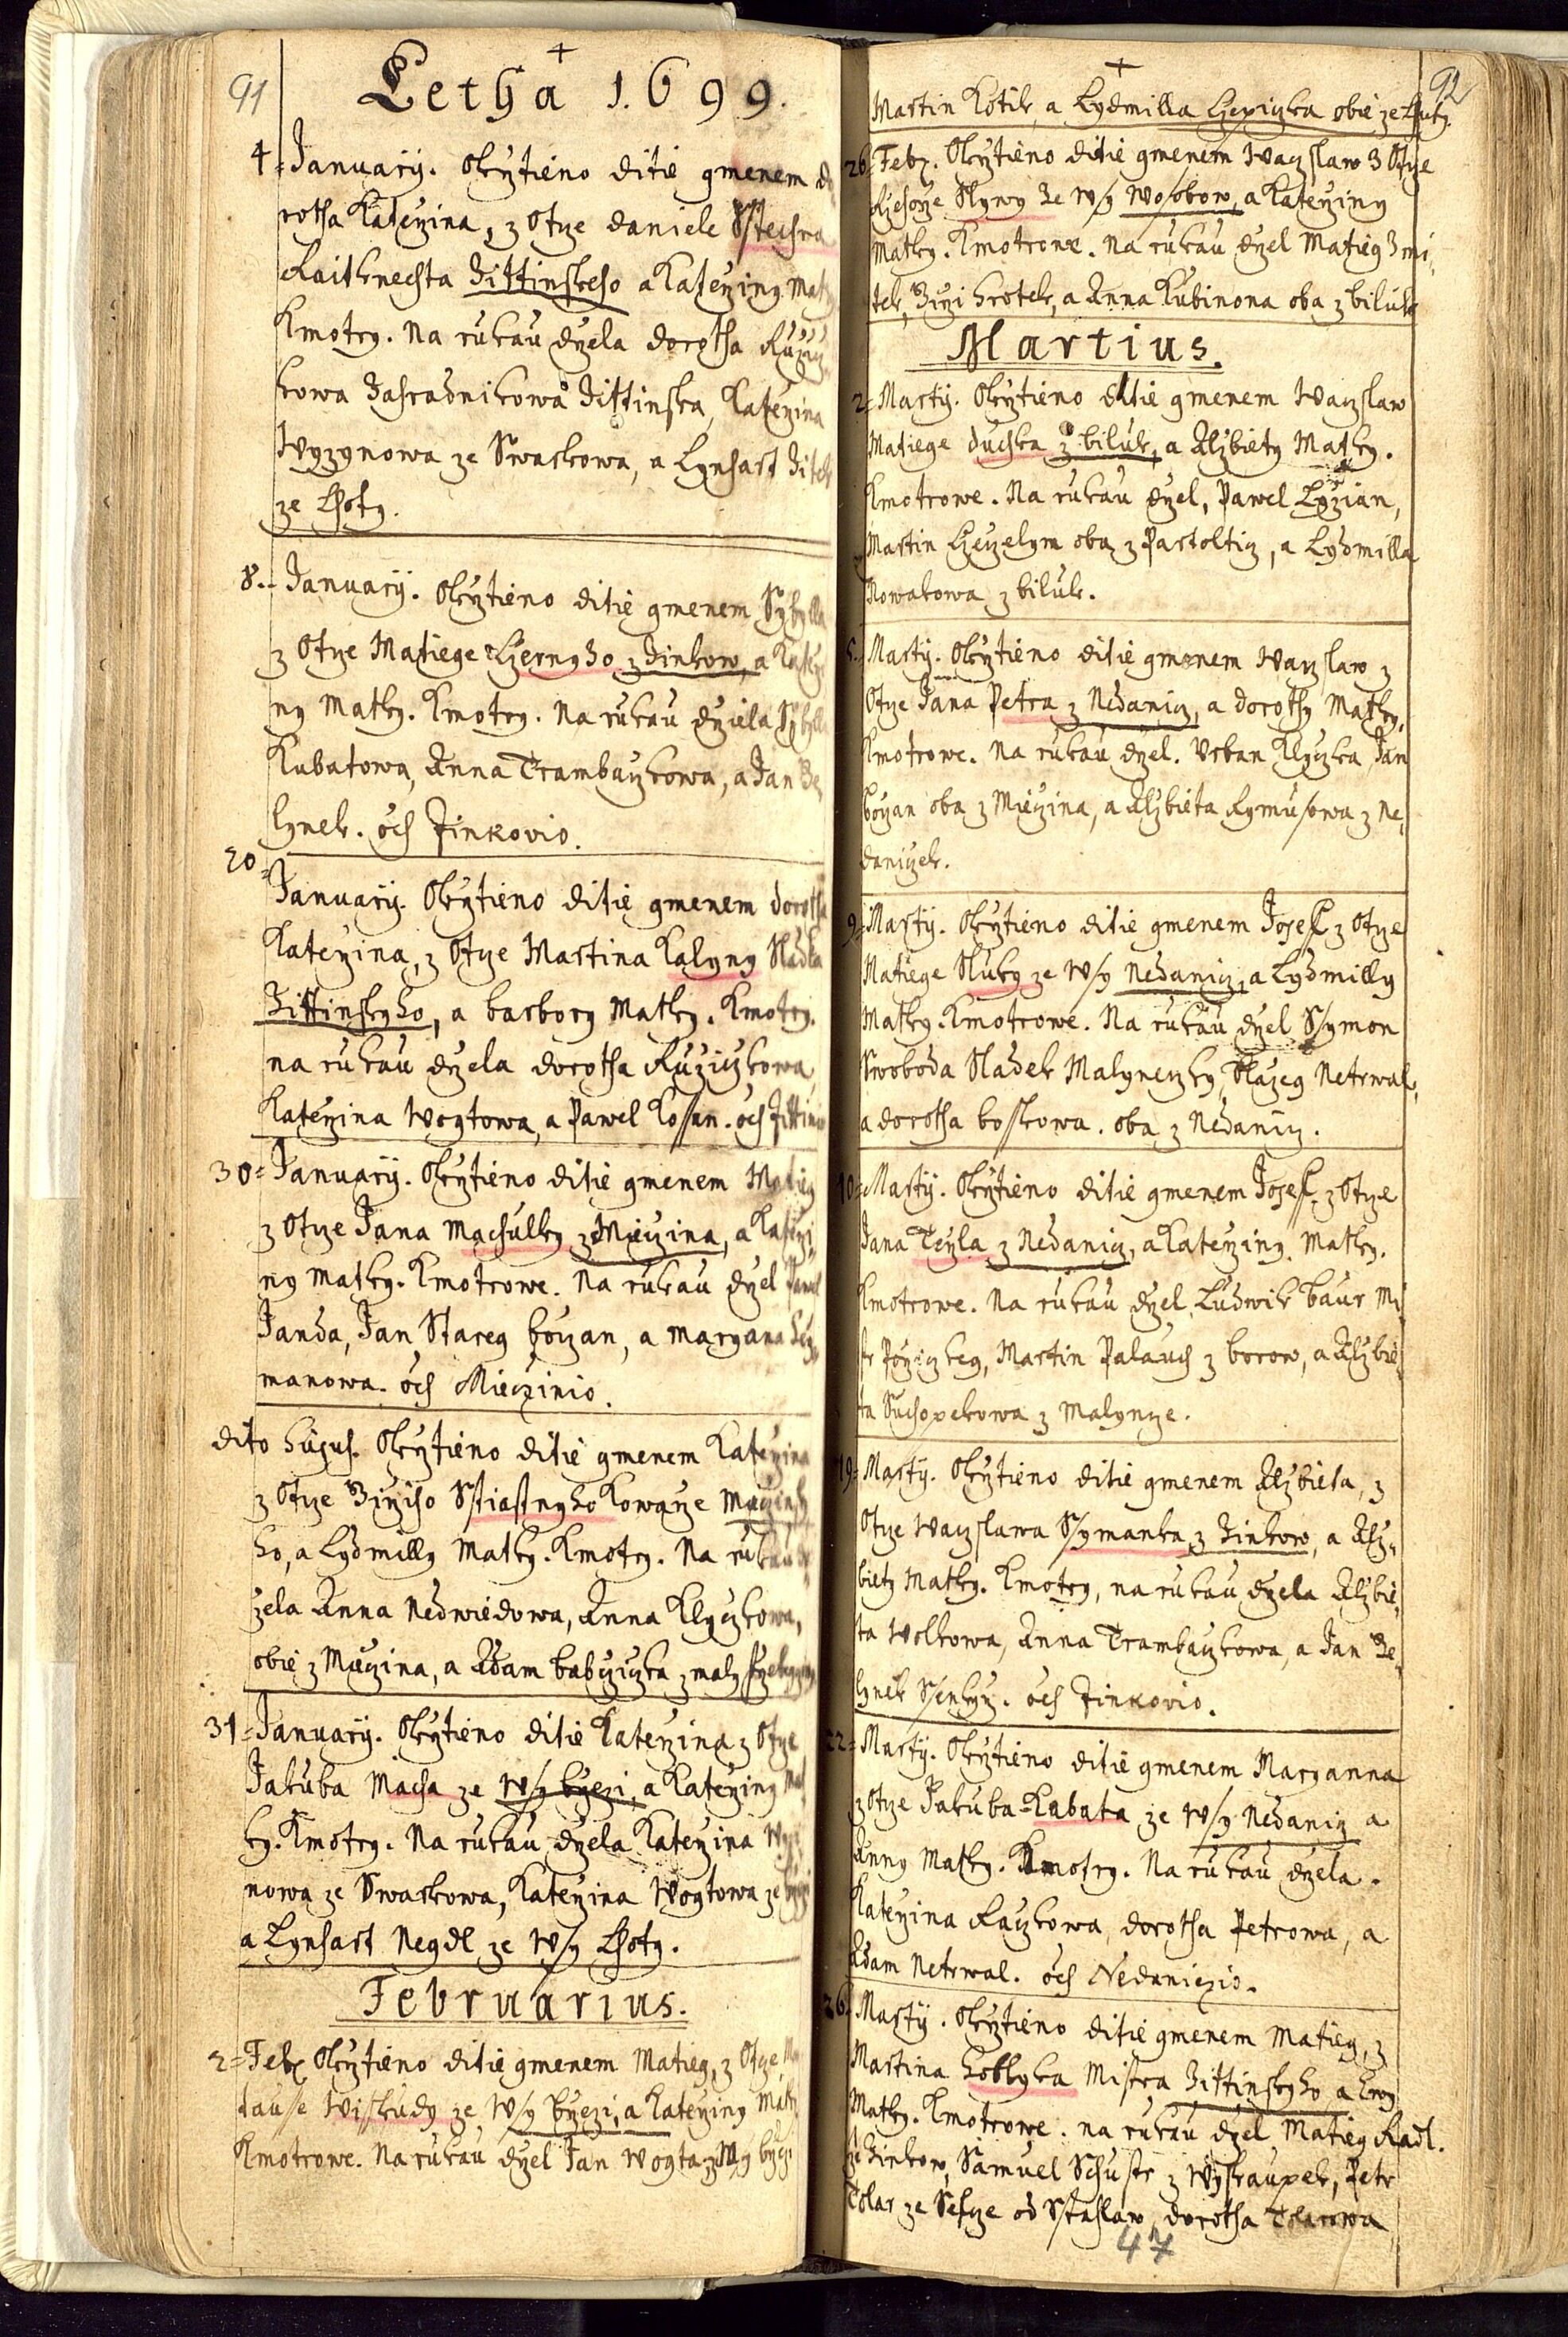 91
Letha 1699.
4= Januarij. Okrztieno ditie gmenem do
rotha Katerzina, z Otcze Daniele
Raitknechta Zittinskeho a Katerziny Matky
Kmotry. Na rukau drzela dorotha
kowa Zahradnikowa Zittinska, Katerzina
ze Swarkowa, a Lynhart Zitek
ze Lhoty.
8.. Januarij. Okrztieno ditie gmenem Sybylla
z Otcze Matiege Czernyho z Zinkow, a Katerzi
ny Matky. Kmotry. Na rukau drziela Sybylla
Kubatowa, Anna Trambaczkowa, a Jan Ze
lynek. och Zinkovio.
20=
Januarij. Okrztieno ditie gmenem dorotha
Katerzina, z Otcze Martina Kalyny Sladka
Zittinskyho, a barbory Matky. Kmotry.
na rukau drzela dorotha Ruziczkowa,
Katerzina Wogtowa, a Pawel Kossan. och Zittinio
30= Januarij. Okrztieno ditie gmenem Matieg
z Otcze Jana Machulky z Mieczina, a Katerzi,
ny Matky. Kmotrowe. Na rukau drzel Pawel
Janda, Jan Stareg borzan, a Maryana
manowa. och Mieczinio.
dito hujus. Okrztieno ditie gmenem Katerzina
z Otcze Girziho Stiastnyho Kowarze
ho, a Lydmilly Matky. Kmotry. Na rukau dr
zela Anna Nedwiedowa, Anna Klyczkowa,
obie z Mieczina, a Adam babcziczka z maly
31= Januarij. Okrztieno ditie Katerzina z Otcze
Jakuba Macha ze Wsy brzezi, a Katerziny Mat
ky. Kmotry. Na rukau drzela Katerzina
nowa ze Swarkowa, Katerzina Wogtowa ze brzezi
a Lynhart Negdl ze Wsy Lhoty.
Februarius.
2= Feb. Okrztieno ditie gmenem Matieg, z Otcze Ma
tause Wiskudy ze Wsy brzezi, a Katerziny Matky
Kmotrowe. Na rukau drzel Jan Wogta z Wsy brzezi
92
Martin Kotik, a Lydmilla obie ze Lhoty.
26= Feb. Okrztieno ditie gmenem Waczslaw z Otcze
Rzehorze Slywy ze Wsy Wosobow, a Katerziny
Matky. Kmotrowe. Na rukau drzel Matieg Zmi,
tek, Girzi Krotek, a Anna Kubinona oba z biluk
Martius.
2= Martij. Okrztieno ditie gmenem Waczslaw
Matiege duchka z biluk, a Alzbiety Matky.
Kmotrowe. Na rukau drzel, Pawel Lyzian,
Martin oba z Partoltiz, a Lydmilla
Nowakowa z biluk.
5. Martij. Okrztieno ditie gmenem Waczslaw z
Otcze Jana Petra z Nedanicz, a dorothy Matky.
Kmotrowe. Na rukau drzel. Urban Klyczka, Jan
borzan oba z Mieczina, a Alzbieta Rymusowa z Ne,
daniczek.
9= Martij. Okrztieno ditie gmenem Josef z Otcze
Matiege Sluky ze Wsy Nedanicz, a Lydmilly
Matky. Kmotrowe. Na rukau drzel Symon
Swoboda Sladek Malyneczky, Blazeg Netrwal,
a dorotha boskowa. oba z Nedanicz.
10= Martij. Okrztieno ditie gmenem Josef. z Otcze
Jana Teyla z Nedanicz, a Katerziny Matky.
Kmotrowe. Na rukau drzel Ludwik baur Mi
str Martin Palauch z borow, a Alzbie
ta Suchopekowa z Malyncze.
19= Martij. Okrztieno ditie gmenem Alzbieta, z
Otcze Waczslawa Symanka z Zinkow, a Alz,,
biety Matky. Kmotry, na rukau drzela Alzbie
ta Wolkowa, Anna Trambaczkowa, a Jan Ze
lynek Senkyrz. och Zinkovio.
22= Martij. Okrztieno ditie gmenem Maryanna
z Otcze Jakuba Kabata ze Wsy Nedanicz a
Anny Matky. Kmotry. Na rukau drzela.
Katerzina Raczkowa, dorotha Petrowa, a
Adam Netrwal. och Nedaniczio.
26. Martij. Okrztieno ditie gmenem Matieg, z
Martina Koblyka Mistra Zittinskyho, a Ewy
Matky. Kmotrowe. na rukau drzel Matieg Radl.
ze Zinkow, Samuel Schustr z Wyskaupek, Petr
Tolar ze Sekrze od Stahlaw, dorotha Tolarowa
47